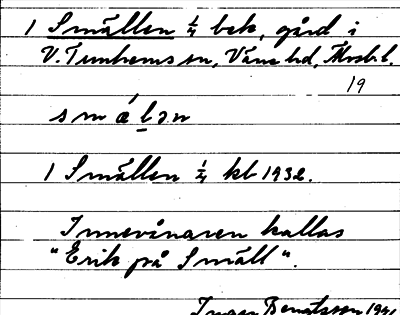 1 Smällen 1/4 bek, gård i
V. Tunhems sn, Väne hd, Älvsb.l.
19
smálɔn
1 Smällen 1/4 kb 1932.
Innevånaren kallas
"Erik på Smäll".
Inger Bengtsson 19